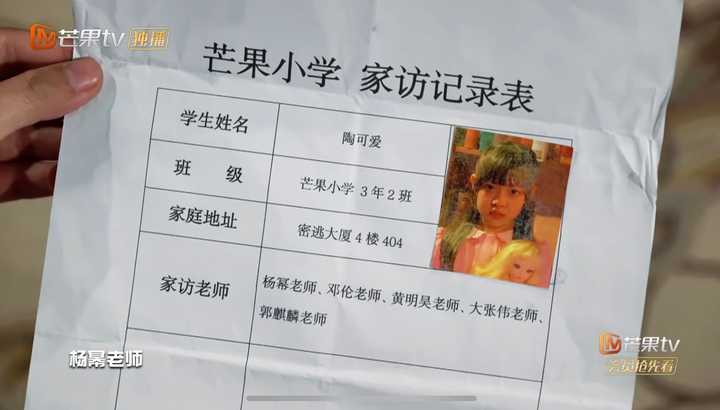 芒果tv 独播
芒果小学 家访记录表
学生姓名 陶可爱
班 级 芒果小学 3年2班
家庭地址 密逃大厦4楼404
家访老师 杨幂老师、邓伦老师、黄明昊老师、大张伟老师、
郭麒麟老师
杨幂老师
芒果tv
会员抢先看